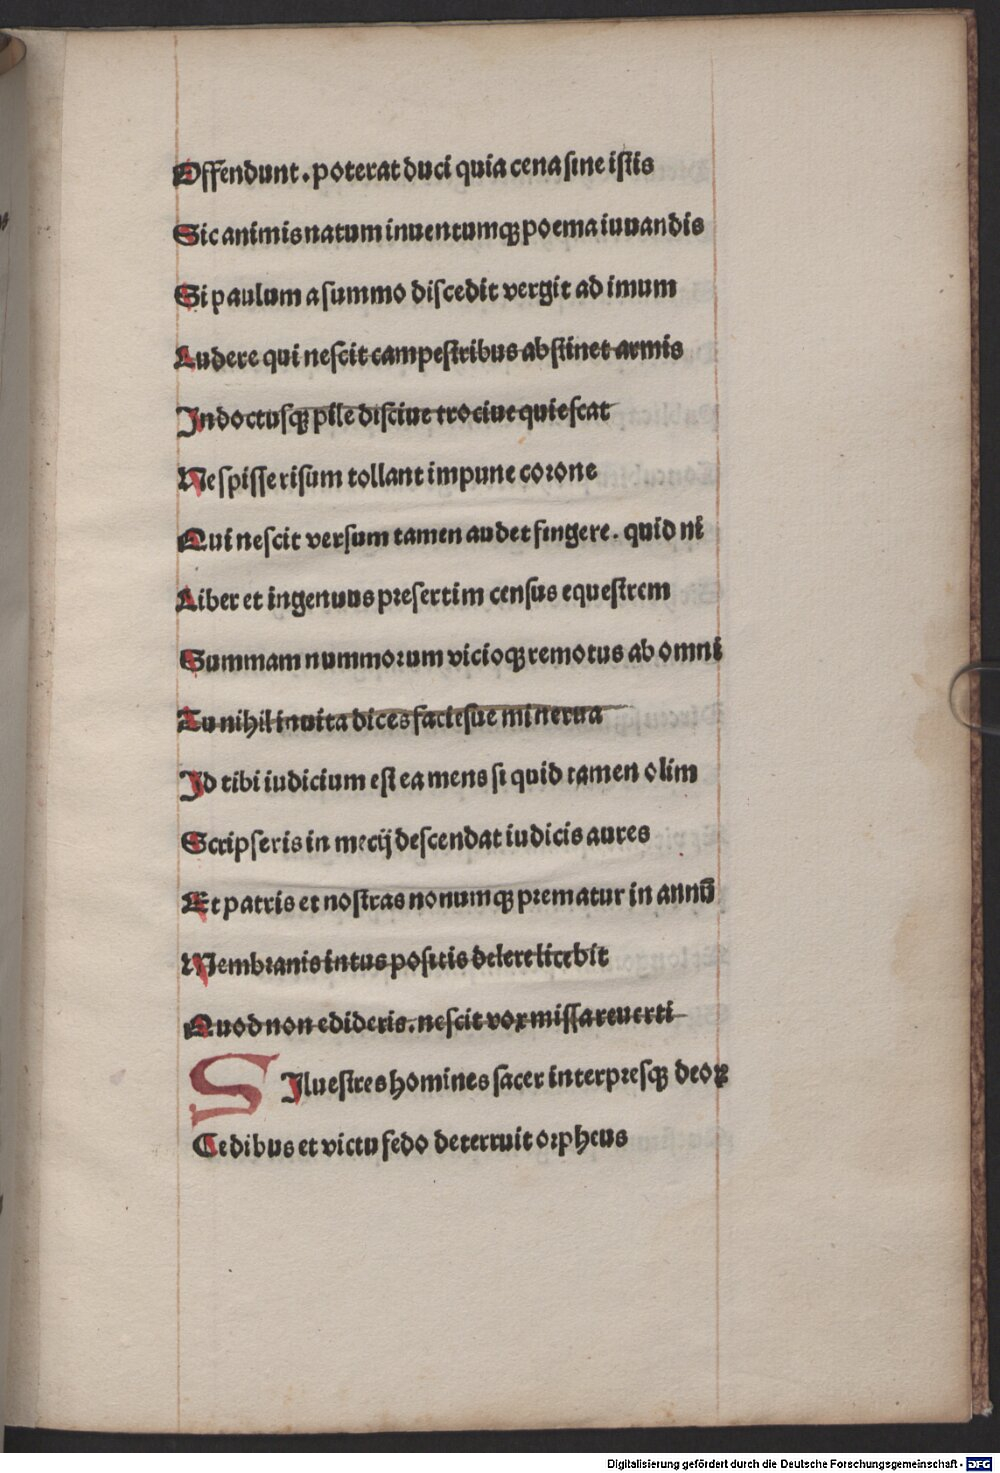 Offendunt . poterat duci quia cena sine istis
Sic animis natum inuentumqꝫ poema iuuandis
Si paulum a summo discedit vergit ad imum
Ludere qui nescit campestribus abstinet armis
Indoctusqꝫ pile disciue trociue quiescat
Ne spisse risum tollant impune corone
Qui nescit versum tamen audet fingere . quid ni
Liber et ingenuus presertim census equestrem
Summam nummorum vicioqꝫ remotus ab omni
Tu nihil inuita dices faciesue minerua
Id tibi iudicium est ea mens si quid tamen olim
Scripseris in mecij descendat iudicis aures
Et patris et nostras nonumqꝫ prematur in annū
Membranis intus positis delere licebit
Quod non edideris . nescit vox missa reuerti
SIluestres homines sacer interpresqꝫ deoꝝ
Cedibus et victu fedo deterruit orpheus
Digitalisierung gefördert durch die Deutsche Forschungsgemeinschaft - DFG